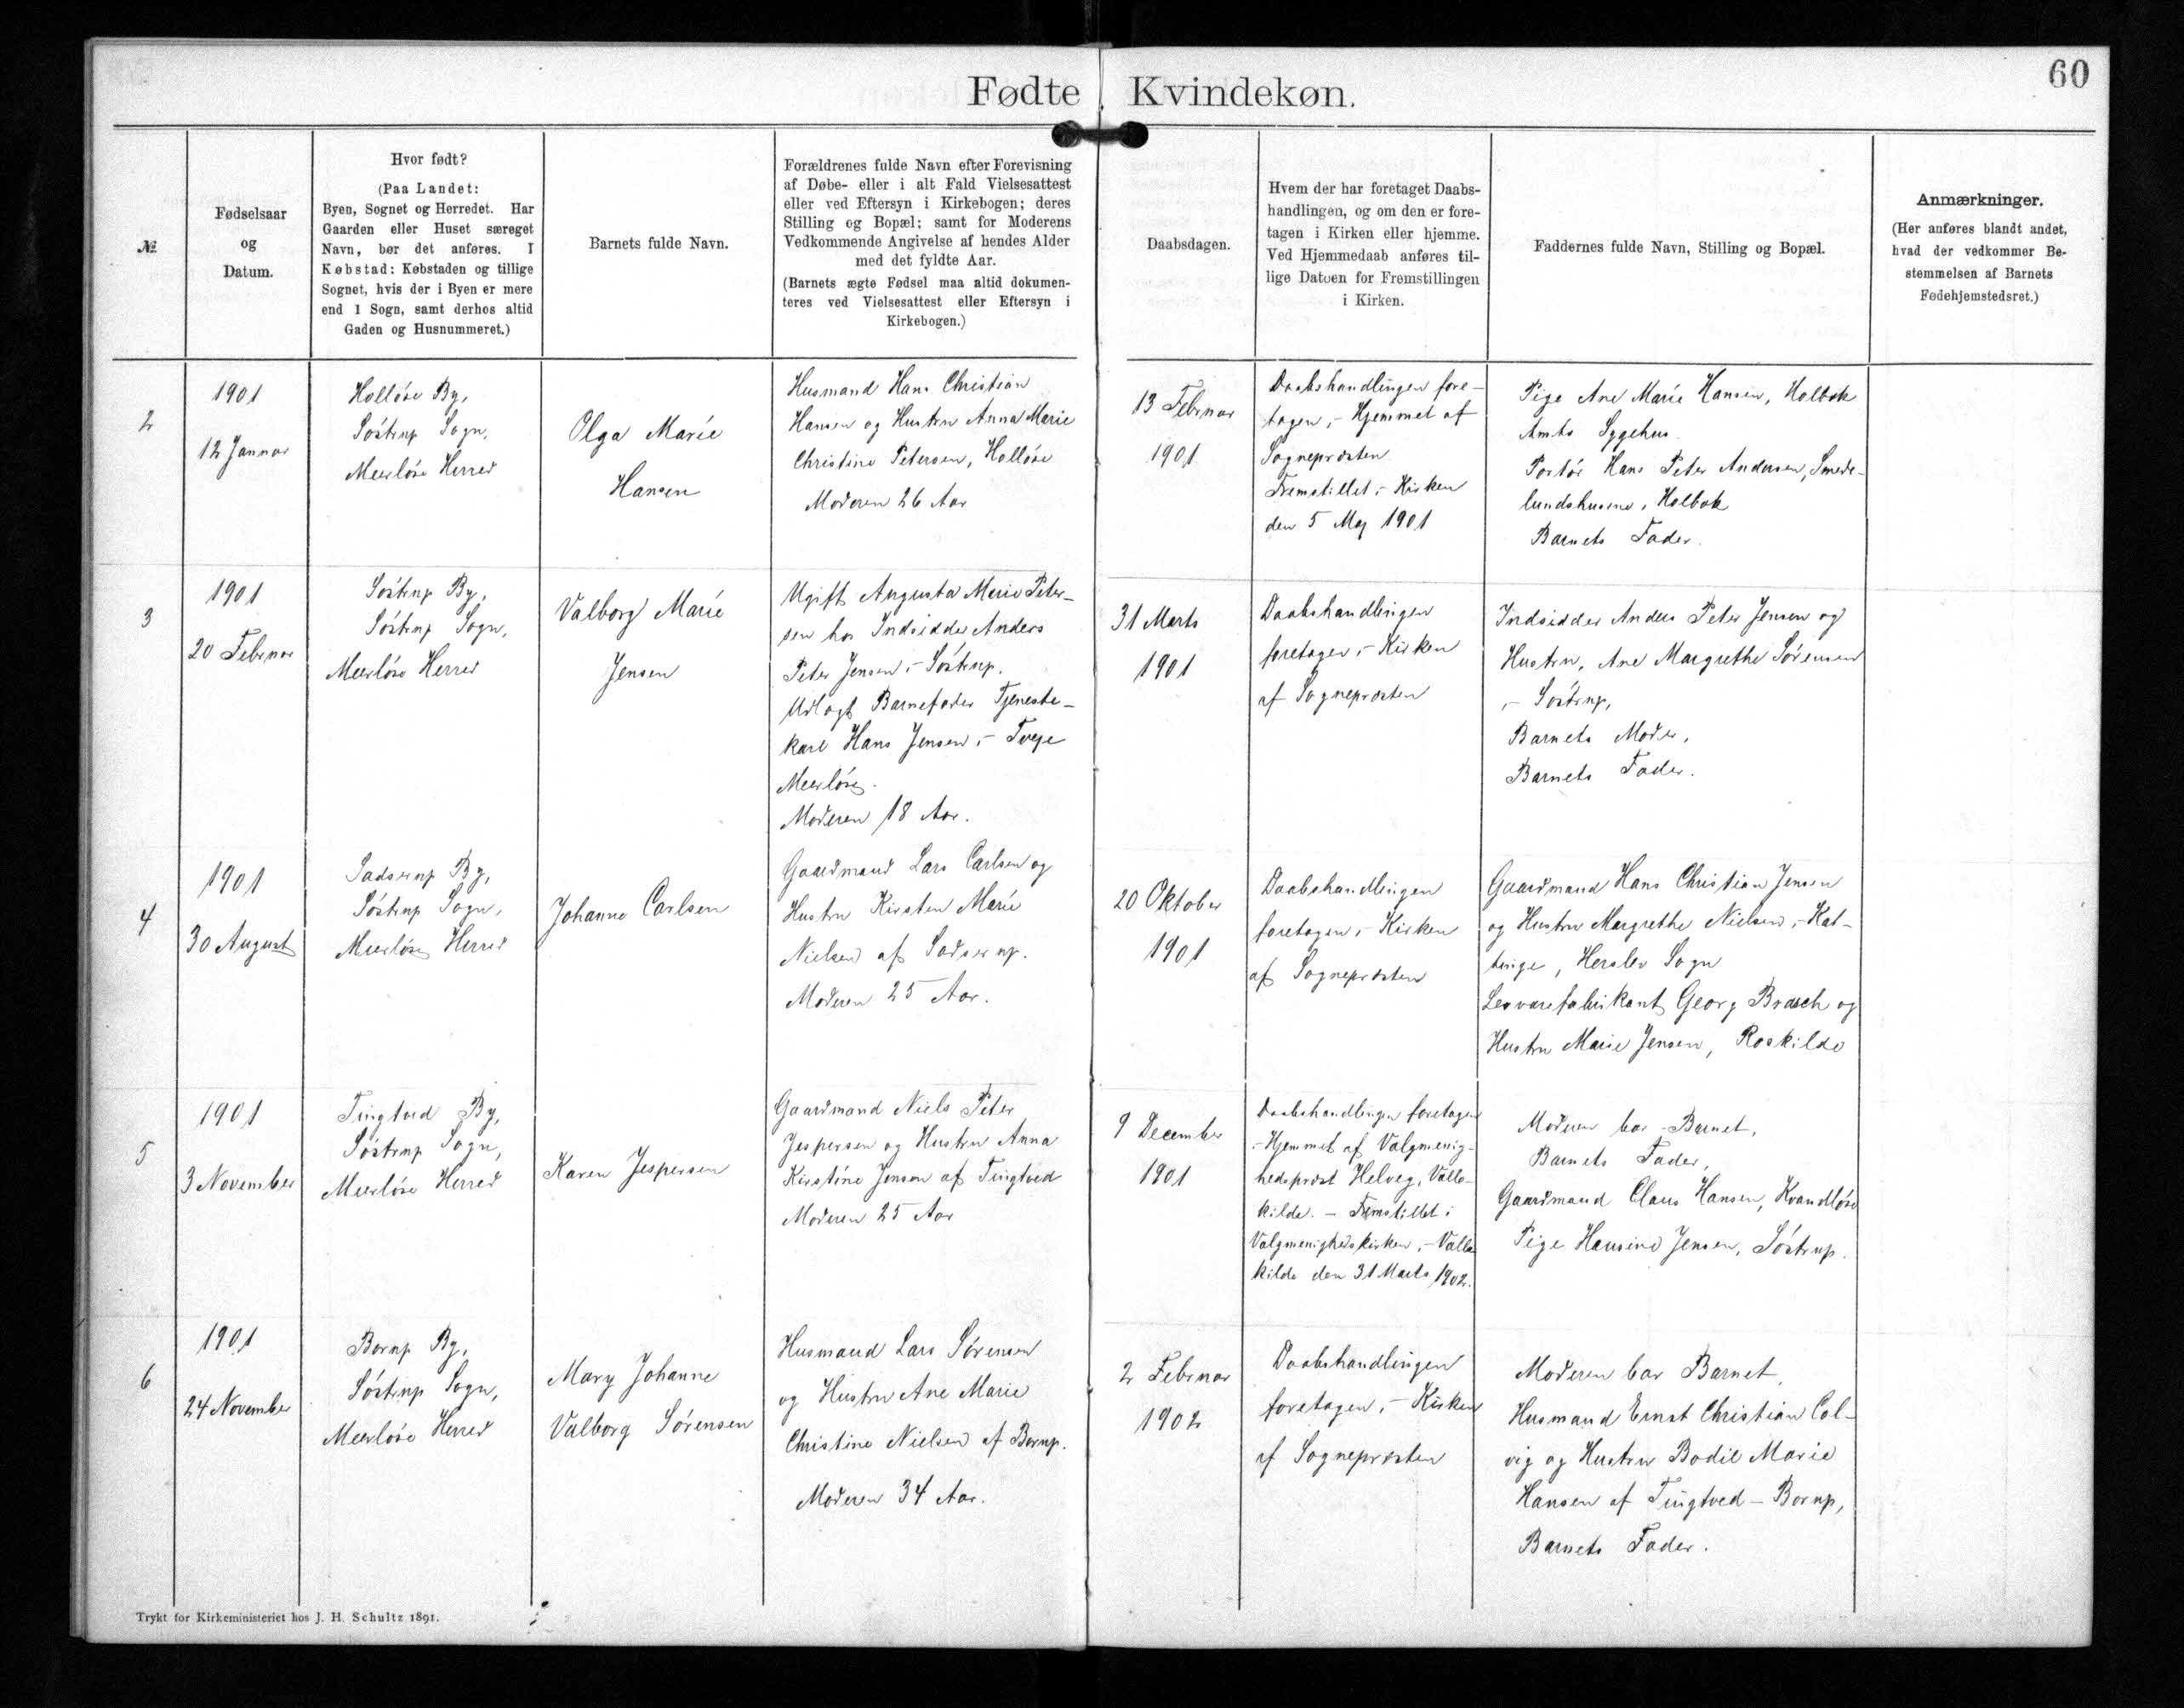 60
Fødte Kvindekøn.
№
Fødselsaar
og
Datum.
Hvor født?
(Paa Landet:
Byen, Sognet og Herredet. Har
Gaarden eller Huset særeget
Navn, bør det anføres. I
Købstad: Købstaden og tillige
Sognet, hvis der i Byen er mere
end 1 Sogn, samt derhos altid
Gaden og Husnummeret.)
Barnets fulde Navn.
Forældrenes fulde Navn efter Forevisning
af Døbe- eller i alt Fald Vielsesattest
eller ved Eftersyn i Kirkebogen; deres
Stilling og Bopæl; samt for Moderens
Vedkommende Angivelse af hendes Alder
med det fyldte Aar.
(Barnets ægte Fødsel maa altid dokumen-
teres ved Vielsesattest eller Eftersyn i
Kirkebogen.)
Daabsdagen.
Hvem der har foretaget Daabs-
handlingen, og om den er fore-
tagen i Kirken eller hjemme.
Ved Hjemmedaab anføres til-
lige Datoen for Fremstillingen
i Kirken.
Faddernes fulde Navn, Stilling og Bopæl.
Anmærkninger.
(Her anføres blandt andet,
hvad der vedkommer Be-
stemmelsen af Barnets
Fødehjemstedsret.)
2
1901
12 Januar
Holløse By,
Søstrup Sogn,
Meerløse Herred
Olga Marie
Hansen
Husmand Hans Christian
Hansen og Hustru Anna Marie
Christine Petersen, Holløse
Moderen 26 Aar
13 Februar
1901
Daabshandlingen fore-
tagen i Hjemmet af
Sognepræsten
Fremstillet i Kirken
den 5 Maj 1901
Pige Ane Marie Hansen, Holbæk
Amts Sygehus.
Portør Hans Peter Andersen, Smede-
lundshusene, Holbæk
Barnets Fader.
3
1901
20 Februar
Søstrup By,
Søstrup Sogn,
Meerløse Herred
Valborg Marie
Jensen
Ugift Augusta Marie Peter-
sen hos Indsidder Anders
Peter Jensen i Søstrup.
Udlagt Barnefader Tjeneste-
karl Hans Jensen i Tveje
Meerløse.
Moderen 18 Aar.
31 Marts
1901
Daabshandlingen
foretagen i Kirken
af Sognepræsten
Indsidder Anders Peter Jensen og
Hustru, Ane Margrethe Sørensen
i Søstrup,
Barnets Moder,
Barnets Fader.
4
1901
30 August
Sadserup By,
Søstrup Sogn,
Meerløse Herred
Johanne Carlsen
Gaardmand Lars Carlsen og
Hustru Kirsten Marie
Nielsen af Sadserup.
Moderen 25 Aar.
20 Oktober
1901
Daabshandlingen
foretagen i Kirken
af Sognepræsten
Gaardmand Hans Christian Jensen
og Hustru Margrethe Nielsen, i Kat-
tinge, Herslev Sogn
Lervarefabrikant Georg Brasch og
Hustru Marie Jensen, Roskilde
5
1901
3 November
Tingtved By,
Søstrup Sogn,
Meerløse Herred
Karen Jespersen
Gaardmand Niels Peter
Jespersen og Hustru Anna
Kirstine Jensen af Tingtved
Moderen 25 Aar
9 December
1901
Daabshandlingen foretagen
i Hjemmet af Valgmenig-
hedspræst Helveg, Valle-
kilde. - Fremstillet i
Valgmenighedskirken i Valle-
kilde den 31 Marts 1902.
Moderen bar Barnet,
Barnets Fader,
Gaardmand Claus Hansen, Kvandløse
Pige Hansine Jensen, Søstrup.
6
1901
24 November
Borup By,
Søstrup Sogn,
Meerløse Herred
Mary Johanne
Valborg Sørensen
Husmand Lars Sørensen
og Hustru Ane Marie
Christine Nielsen af Borup.
Moderen 34 Aar.
2 Februar
1902
Daabshandlingen
foretagen i Kirken
af Sognepræsten
Moderen bar Barnet,
Husmand Ernst Christian Col-
vig og Hustru Bodil Marie
Hansen af Tingtved - Borup,
Barnets Fader.
Trykt for Kirkeministeriet hos J. H. Schultz 1891.